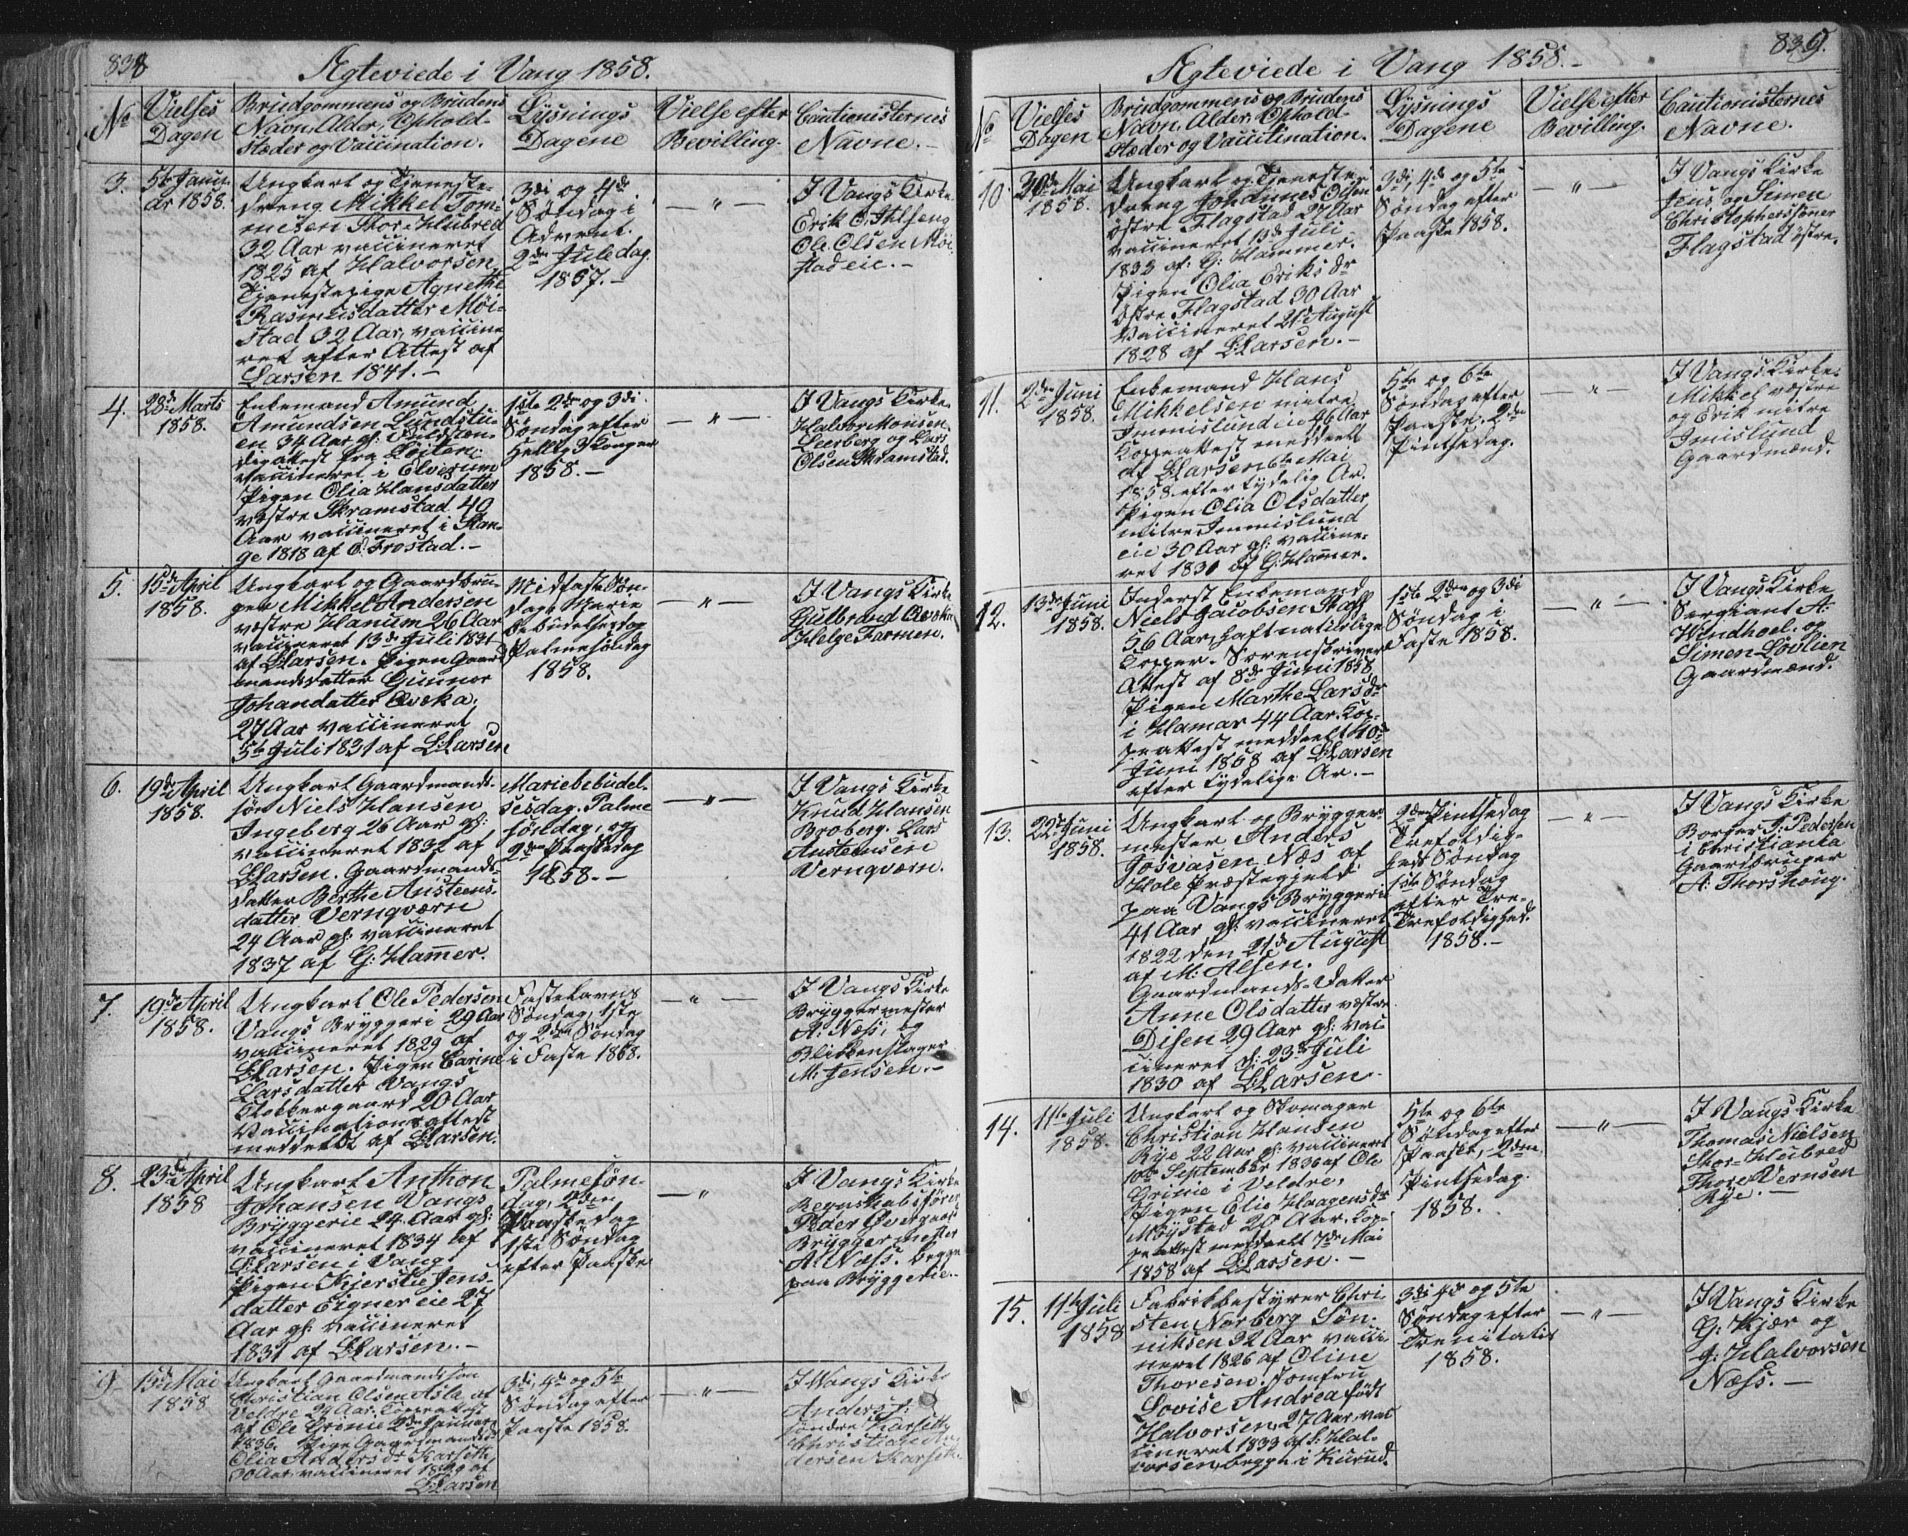 838
Ægteviede i Vang 1858.
No
Vielses
Dagen
Brudgommens og Brudens
Navn, Alder, Ophold-
stæder og Vaccination.
Lysnings
Dagene
Vielse efter
Bevilling.
Cautionisternes
Navne.
3.
5te Janu-
ar 1858.
Ungkarl og Tjeneste-
dreng Mikkel Tom-
mesen Thor-Hubred
32 Aar vaccineret
1825 af Halvorsen
Tjenestepige Agnethe
Rasmusdatter Møi-
stad 32 Aar, vaccine
ret efter Attest af
Larsen 1841.
3di og 4de
Søndag i
Advent.
2den Juledag.
1857.
— " —
I Vangs Kirke
Ole Olsen Møi
stadeie.
4.
28de Marts
1858.
Enkemand Amund
Amundsen Lundstu-
en 34 Aar gl. Fuldstæn-
dig attest fra Løiten
vaccineret i Elverum
Pigen Olia Hansdatter
vestre Skramstad 40
Aar vaccineret i Stan-
ge 1818 af E. Frostad.
1ste 2den og 3di
Søndag efter
Hellig 3 Konger
1858.
— " —
I Vangs Kirke
Halvor Monsen
Lerberg og Lars
Olsen Skramstad.
5.
15de April
1858.
Ungkarl og Gaardbru-
ger Mikkel Andersen
vestre Hanum 26 Aar
vaccineret 13de Juli 1831
af LLarsen. Pigen Gaard
mandsdatter Gunnor
Johandatter Ovska
27 Aar vaccineret
5te Juli 1831 af LLarsen
Midfaste Søn-
dag, Marie
Bebudelsesdag
Palmesøndag
1858.
— " —
I Vangs Kirke
Gulbrand Ovska
Helge Farmen.
6.
19de April
1858.
Ungkarl Gaardmands-
søn Niels Hansen
Ingeberg 26 Aar gl:
vaccineret 1832 af
LLarsen. Gaardmands-
datter Berthe Austeens-
datter Verngværn
24 Aar gl. vaccineret
1837 af G: Hamer.
Mariebebudel-
sesdag. Palme
søndag, og
2den Paaskedag
1858.
— " —
I Vangs Kirke
Knud Hansen
Broberg. Lars
Austeensen
Verngværn.
7.
19de April
1858.
Ungkarl Ole Pedersen
Vangs Bryggeri 29 Aar
vaccineret 1829 af
LLarsen. Pigen Karine
Larsdatter Vangs
Klokkergaard 20 Aar
Vaccinationsattest
meddeelt af LLarsen.
Fastelavns
Søndag, 1ste
og 2den Søndag
i Faste 1858.
— " —
I Vangs Kirke
Bryggermester
A: Næss, og
Blikkenslager
M: Jensen.
8.
23de April
1858
Ungkarl Anthon
Johansen Vangs
Bryggerie 24 Aar gl:
vaccineret 1834 af
LLarsen i Vang.
Pigen Kjerstie Jens-
datter Eigner eie 27
Aar gl: vaccineret
1831 af LLarsen.
Palmesøn-
dag, 2den
Paaskedag
1ste Søndag
efter Paaske
— " —
I Vangs Kirke
Regnskabsfører
Peder Overgaard
Bryggermester
A: Næss. begge
paa Bryggerie.
9
13de Mai
1858
Ungkarl Gaardmandssøn
Christian Olsen Aslæ af
Veldre 24 Aar. Koppeattest
af Ole Grinie 2den Januar
1836. Pige Gaardmandsd
Olia Andersdr Karseth,
30 Aar vaccineret af
LLarsen
3di 4de og 5te
Søndag efter
Paaske 1858.
— " —
I Vangs Kirke
Anders
søndre Karseth
Christian An-
dersen Karseth.
839.
Ægteviede i Vang 1858.
No
Vielses
Dagen
Brudgommens og Brudens
Navn, Alder, Ophold-
stæder og Vaccination.
Lysnings
Dagene
Vielse efter
Bevilling.
Cautionisternes
Navne.
10.
30de Mai
1858.
Ungkarl og Tjeneste-
dreng Johannes Olsen
østre Flagstad 27 Aar
vaccineret 13de Juli
1833 af: G: Hammer.
Pigen Olia Eriksdr
østre Flagstad 30 Aar
Vaccineret 21de August
1828 af LLarsen.
3di, 4de og 5te
Søndag efter
Paaske 1858.
— " —
I Vangs Kirke
Jens og Simen
Christophersønner
Flagstad østre.
11.
2den Juni
1858.
Enkemand Hans
Mikkelsen mitre
Immislund eie 46 Aar
Koppeattest meddeelt
af LLarsen 6te Mai
1858. efter tydelig Ar.
Pigen Olia Olsdatter
mitre Immislund
eie 30 Aar gl. vaccine-
ret 1830 af G: Hammer.
5te og 6te
Søndag efter
Paaske. 2den
Pintsedag.
— " —
I Vangs Kirke
Mikkel vestre
og Erik mitre
Imislund
Gaardmænd.
12.
13de Juni
1858.
Inderst Enkemand
Niels Jacobsen
56 Aar, haft naturlige
Kopper. Sorenskriver
Attest af 8de Juni 1858
Pigen Marthe Larsdr
i Hamar 44 Aar. Kop-
peattest meddeelt 10de
Juni 1858 af LLarsen
efter tydelige Ar.
1ste 2den og 3di
Søndag i
Faste 1858.
— " —
I Vangs Kirke
Sergiant A:
Windhoel. og
Simen Lovlien
Gaardmænd.
13.
22de Juni
1858.
Ungkarl og Brygger
mester Anders
Josvasen Næs af
Hole Præstegjeld
paa Vangs Bryggerie
41 Aar gl: vaccineret
1822 den 21de August
af M: Alsen.
Gaardmands-Datter
Anne Olsdatter vestre
Disen 29 Aar gl: vac-
cineret d: 23de Juli
1830 af LLarsen.
2den Pintsedag
Trefoldig-
heds Søndag
1ste Søndag
efter Tre-
Trefoldighed.
1858.
— " —
I Vangs Kirke
Borger P. Pedersen
i Christiania
Gaardbruger
A: Thorshoug.
14.
11te Juli
1858.
Ungkarl og Skomager
Christian Hansen
Rye 22 Aar gl: vaccineret
10de September 1836 af Ole
Grinie i Veldre,
Pigen Elie Haagensdr
Møystad 20 Aar. Kop-
peattest meddeelt 7de Mai
1858 af LLarsen.
5te og 6te
Søndag efter
Paaske, 2den
Pintsedag.
1858.
— " —
I Vangs Kirke
Thomas Nielsen
Thor-Hubred
Thore Vernsen
Rye.
15.
11te Juli
1858
Fabrikbestyrer Chri-
sten Norberg Søn-
niksen 32 Aar vacci
neret 1826 af Oline
Thoresen. Jomfru
Lovise Andrea født
Halvorsen, 27 Aar, vac-
cineret 1833 af S. Hal-
vorsen, begge i Kurud.
3di 4de og 5te
Søndag efter
Trenitatis
1858.
— " —
I Vangs Kirke
G: Kjær og
G: Halvorsen
Næss.